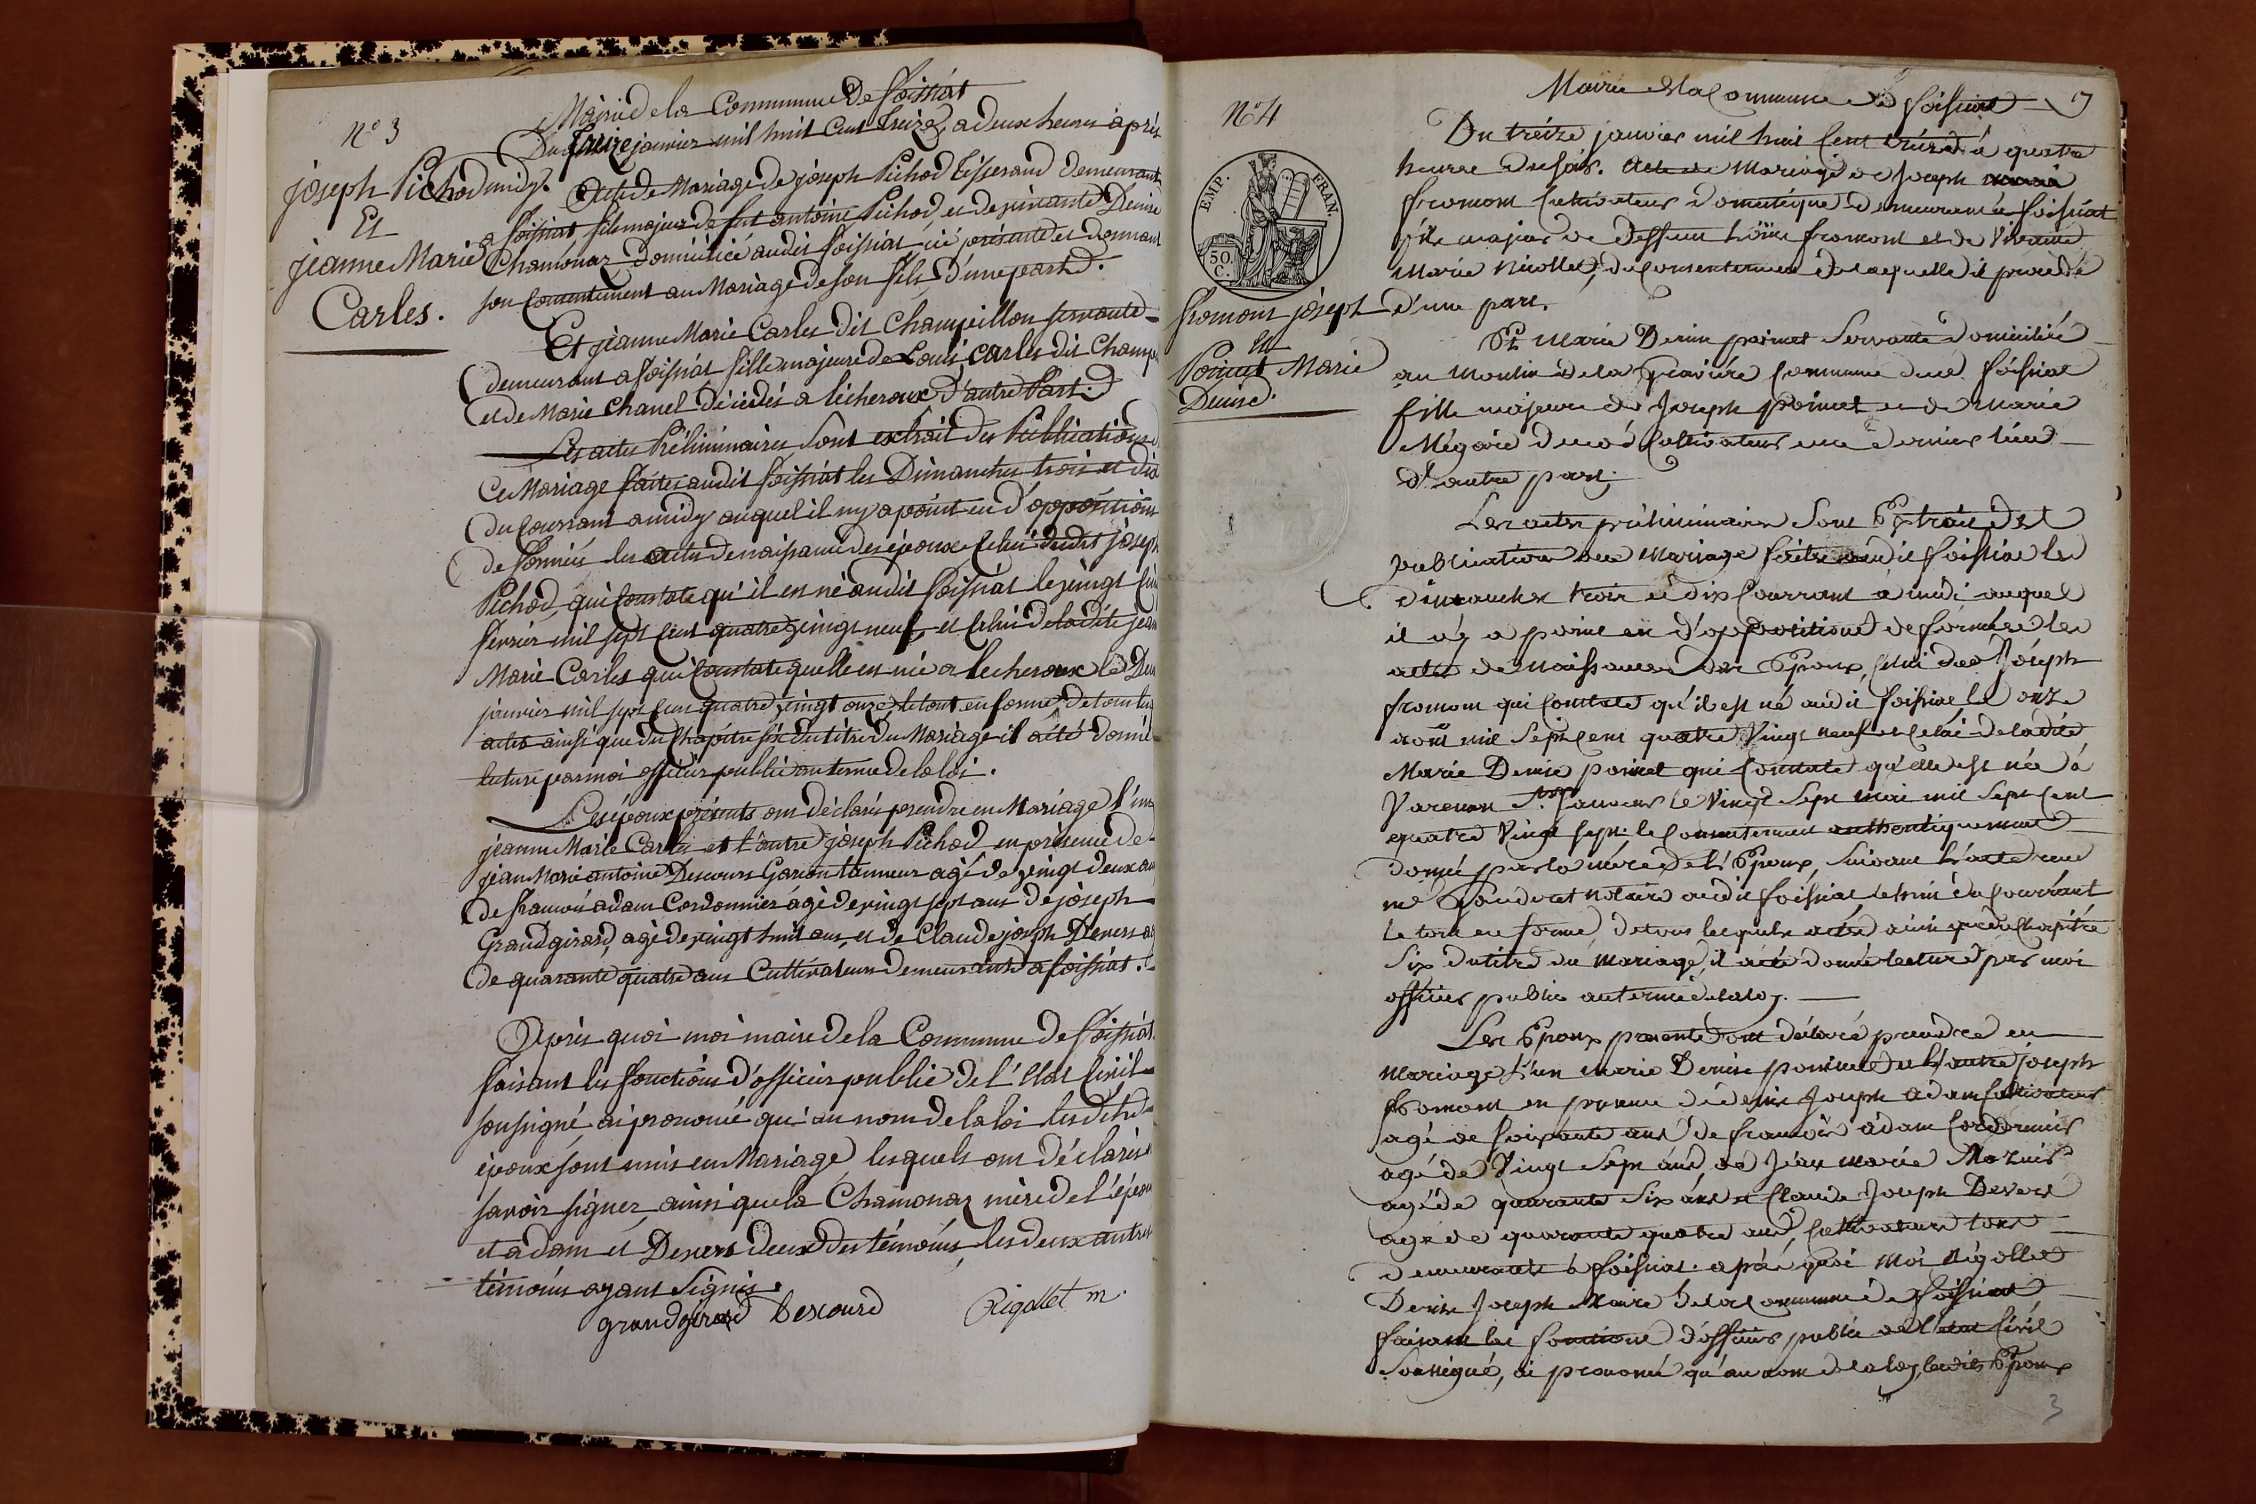 Mairie de la Commune de foissiat
N° 3
Du treize janvier mil huit cent treize, a deux heures après
midy. Acte de Mariage de joseph Pichod tisserand demeurant
a foissiat fils majeur de fut antoine Pichod et de vivante Denise
Chamonaz domiciliée audit foissiat ici présente et donnant
son Consentement au Mariage de son fils d'une part.
joseph Pichod
Et
jeanne Marie
Carles.
Et jeanne Marie Carles dit Champeillon servante
demeurant a foissiat fille majeure de Louis carles dit Champ
et de Marie Chanel décédés a lécheroux d'autre Part.
Les actes Préliminaires sont extrait des Publications
Ce Mariage faites audit foissiat les Dimanches trois et dix
du Courrant a midy auquel il ny a point eu d'oppositions
de formées les actes de naissance des époux Celui dudit joseph
Pichod, qui Constate qu'il est né audit foissiat le vingt
février mil sept Cent quatre vingt neuf, et Celui de ladite jean
Marie Carles qui Constate quelle est née a lecheroux le
janvier mil sept Cent quatre vingt onze le tout en forme, de tous les
actes ainsi que du Chapitre six du titre du Mariage il a été donné
lecture par moi officier public au terme de la loi.
Les époux présents ont déclaré prendre en Mariage l'une
jeanne Marie Carles et l'autre joseph Pichod en présence de
jean Marie antoine Descours Garcon tanneur agé de vingt deux ans
de francois adam Cordonnier agé de vingt sept ans de joseph
Grandgirard, agé de vingt huit ans, et de Claude joseph Devers
de quarante quatre ans Cultivateurs demeurants a foissiat.
Après quoi moi maire de la Commune de foissiat
faisant les fonctions d'officier public de l'Etat Civil
soussigné ai prononcé qu'au nom de la loi lesdits
époux sont unis en Mariage lesquels ont déclarés
savoir signer ainsi que la Chamonaz mère de l'époux
et adam et Devers deux des témoins, les deux autres
témoins ayant signés.
grandgirard Descourd Rigollet m.
Mairie de la Commune de foissiat
N° 4
EMP. FRAN.
50.
C.
Du treize janvier mil huit Cent treize à quatre
heures du soir. Acte de Mariage de Joseph
fromont Cultivateur domestique demeurant à foissiat
fils majeur de deffunt fromont et de vivante
Marie Nicollet, du Consentement de laquelle il procède
d'une part.
fromont joseph
Et
Poinct Marie
Denise.
Et Marie Denise poinct Servante domiciliée
au Moulin de la Commune dudit foissiat
fille majeure de Joseph poinct et de Marie
Cultivateurs dernier lieu
d'autre part;
Les actes préliminaires sont Extrait des
publications de Mariage faites audit foissiat les
dimanches trois et dix Courrant à midi auquel
il n'y a point eu d'oppositions de formées les
actes de naissances des Epoux, Celui dud Joseph
fromont qui Constate qu'il est né audit foissiat le onze
août mil Sept Cent quatre Vingt neuf et Celui de ladite
Marie Denise poinct qui Constate qu'elle est née à
Varennes St. Sauveur le Vingt Sept mai mil Sept Cent
quatre Vingt Sept; le Consentement authentiquement
donné par la mère de l'Epoux, Suivant l'acte reçu
me notaire audit foissiat le huit du Courrant
le tout en forme, de tous lesquels actes ainsi que du Chapitre
Six du titre du mariage, il a été donné lecture par moi
officier public au terme de la loy.
Les Epoux présents ont déclaré prendre en
mariage L'un Marie Denise poinct et L'autre joseph
fromont en présence de denis Joseph adam Cultivateur
agé de soixante ans de francois adam Cordonnier
agé de Vingt Sept ans, de Jean Marie
agé de quarante Six ans et Claude Joseph Devers
agé de quarante quatre ans, Cultivateurs tous
demeurants à foissiat. après quoi Moi Rigollet
Denis Joseph Maire de la Commune de foissiat
faisant les fonctions d'officier public de l'état Civil
Soussigné, ai prononcé qu'au nom de la loy, lesdits Epoux
3